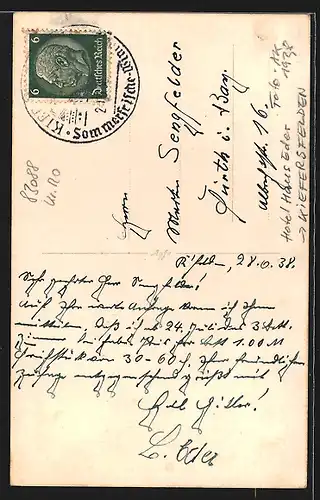 6 Deutsches Reich 6
KIEF
Sommerfrische
Herrn
Martin Sengfelder
Fürth i. Bay.
16.
83088
Hotel Haus Eder Foto-AK
→ KIEFERSFELDEN 1938
K'felden, 28.6.38.
Sehr geehrter Herr Sengfelder!
Auf Ihre werte Anfrage kann ich Ihnen
mitteilen, daß ich ab 24. Juli das 3 Bett.
Zimmer frei habe. Preis per Bett 1.00 M
Frühstück von 30-60 ₰. Ihrer freundlichen
Zusage entgegensehend grüßt mit
Heil Hitler!
L. Eder